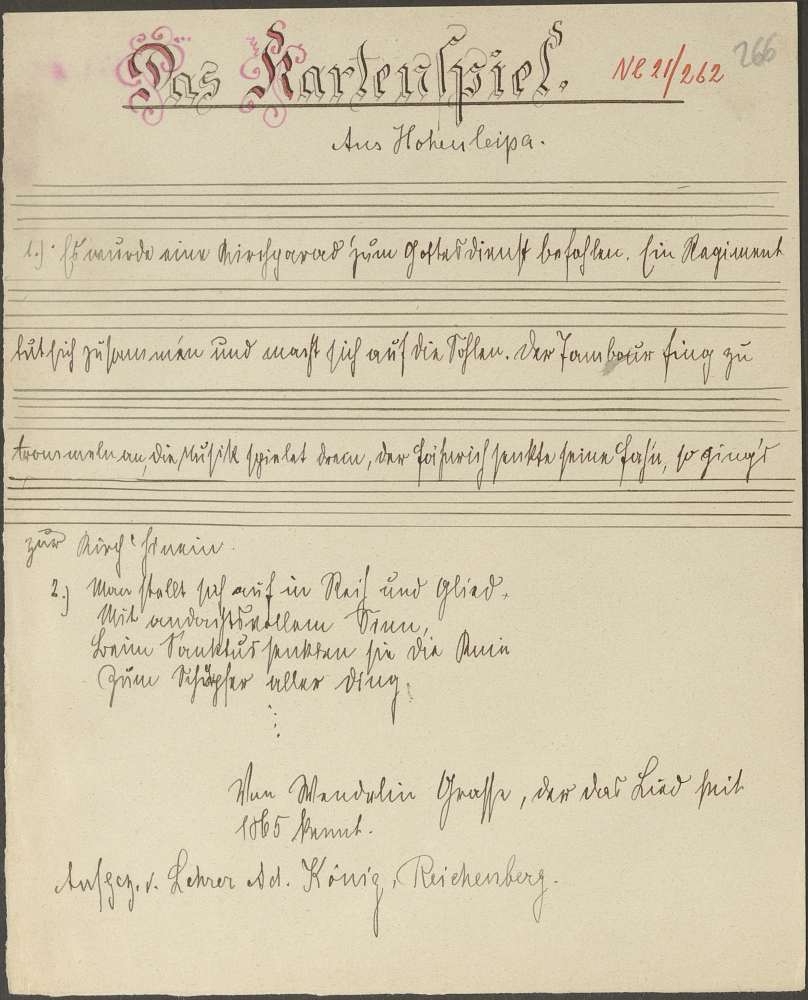 Das Kartenspiel. Nl 21/262 266
Aus Hohenleipa.
1.) Es wurde eine Kirchparad' zum Gottesdienst befohlen. Ein Regiment
tut sich zusammen und macht sich auf die Sohlen. Der Tambour fing zu
trommeln an, die Musik spielet drein, der Fähnrich senkte seine Fahn, so ging's
zur Kirch' hinein.
2.) Man stellt sich auf in Reih und Glied,
Mit andachtsvollem Sinn,
Beim Sanktus senkten sie die Knie
Zum Schöpfer aller Ding.
Von Wendelin Grosse, der das Lied seit
1865 kennt.
Aufgez. v. Lehrer Ad. König, Reichenberg.